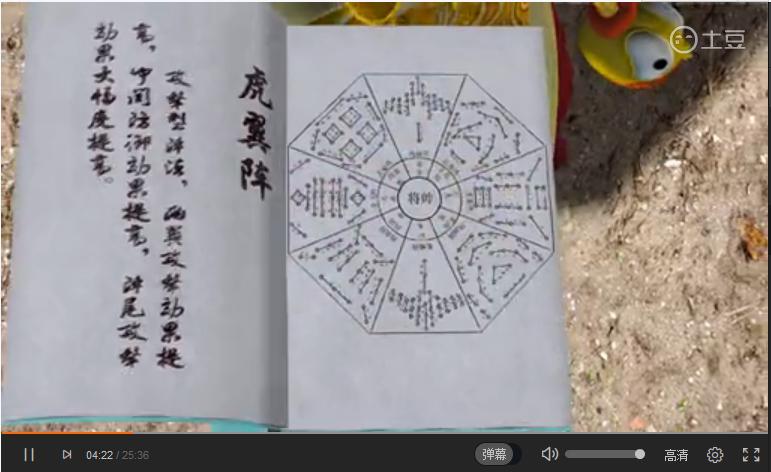 虎翼阵
攻击型阵法，两翼攻击效果提
高，中间防御效果提高，阵尾攻击
效果大幅度提高。
将帅
土豆
04:22 / 25:36
弹幕
高清